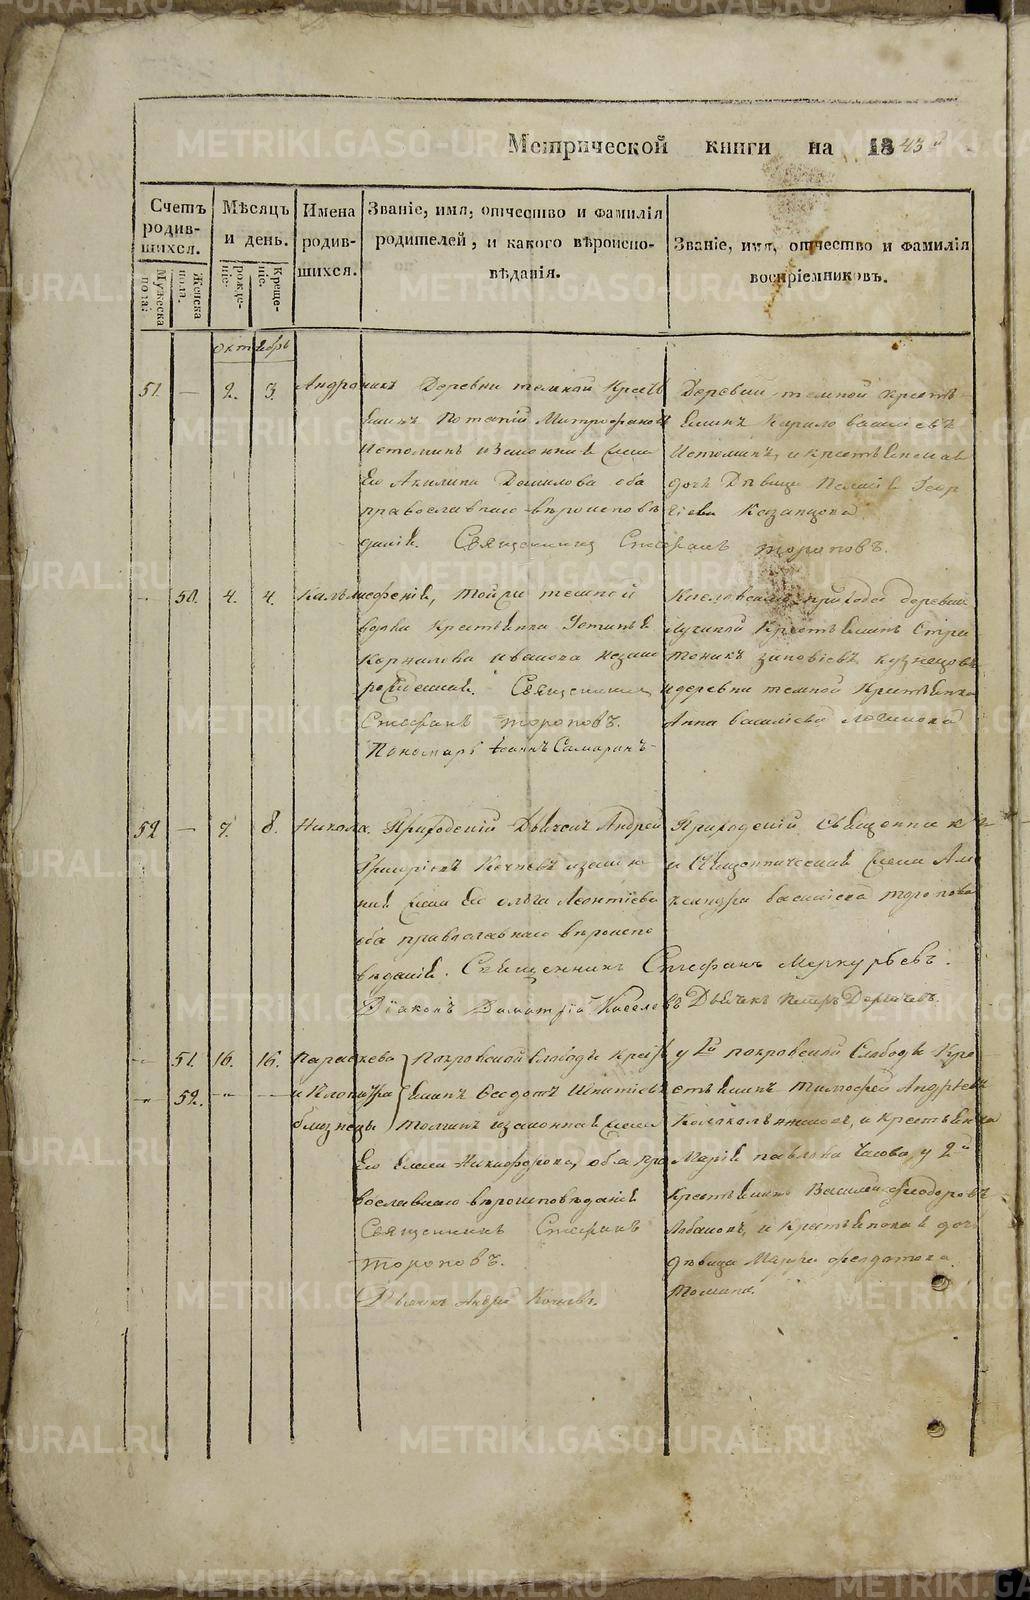 Метрической книги на 1843й
Счетъ родив-шихся.
Мужеска пола.
Женска пола.
Мѣсяцъ и день.
рожде-ніе.
Креще-ніе.
Имена родив-шихся.
Званіе, имя, отчество и фамилія родителей, и какого вѣроиспо-вѣданія.
Званіе, имя, отчество и фамилія воспріемниковъ.
октябрь
51. — 2. 3. Андроникъ
Деревни темной Крестъ
Потапій Митрофановъ
Истоминъ и законная жена
Его Акилина Данилова оба
православнаго вѣроисповѣ
данія. Священникъ Стефанъ Тороповъ.
Деревни темной крестъ
Кирило Васильевъ
Истоминъ, и крестьянская
дочь Дѣвица Пелагія Геор
гіева Казанцова
— 50. 4. 4.
Тойже темной
Крестьянка Устинья
Корнилова Иванова незако
рожденная. Священникъ
Стефанъ Тороповъ.
Пономарь Іоаннъ Самаринъ
прихода деревни
Крестьянинъ
Зиновіевъ Кузнецовъ
и деревни темной Крестьянка
Анна Васильева
52 — 7. 8. Никола.
Приходскій Дьячекъ Андрей
Григорьевъ Кочневъ и закон
ная жена его Ольга Леонтіева
оба православнаго вѣроиспо
вѣданія. Священникъ Стефанъ Меркурьевъ.
Діаконъ Димитрій Киселевъ Дьячекъ Петръ Дерячевъ.
Приходскій Священникъ
и Священническая жена Але
ксандра Васильева Торопова
— 51. 16. 16. Параскева
— 52. — — и Клеопатра
близнецы
Покровской Слободы Крестъ
Феодотъ Игнатіевъ
Томинъ и законная жена
Его Елена Никифорова, оба пра
вославнаго вѣроисповѣданія
Священникъ Стефанъ
Тороповъ.
Дьячекъ Андрей Кочневъ.
у 1й покровской Слободы Кре
стьянинъ Тимофей Андреевъ
и крестьянка
Марія Павлова Часова, у 2й
Крестьянинъ Василій Феодоровъ
Лобановъ, и Крестьянская дочь
дѣвица Марфа Феодотова
Томина.
METRIKI.GASO-URAL.RU